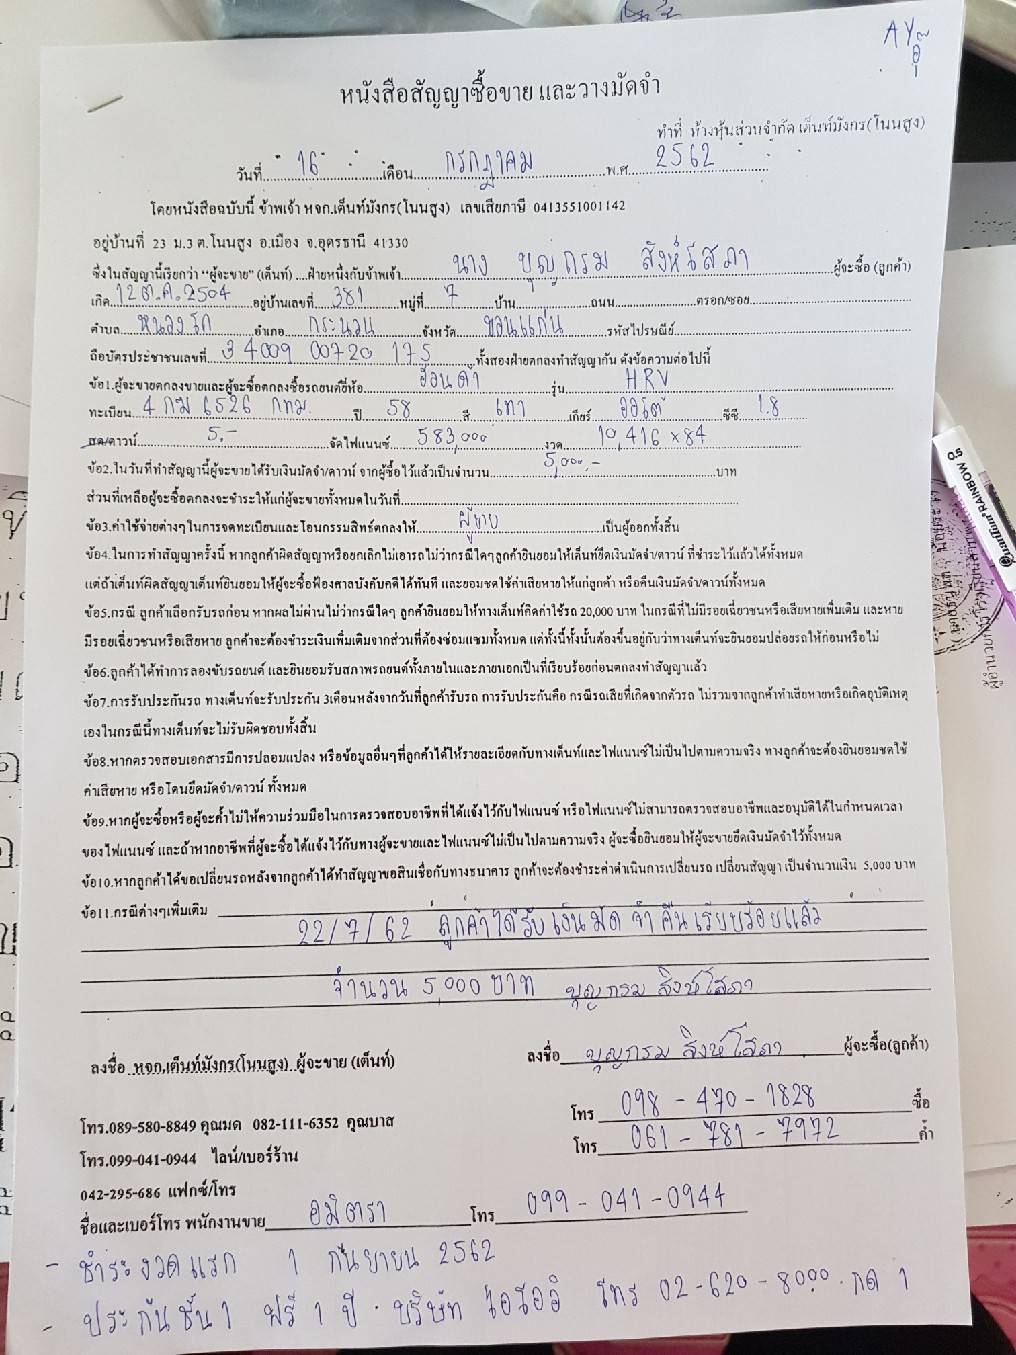 AY
อุ๊
หนังสือสัญญาซื้อขาย และวางมัดจำ
ทำที่ ห้างหุ้นส่วนจำกัด เต็นท์มังกร(โนนสูง)
วันที่ 16 เดือน กรกฎาคม พ.ศ. 2562
โดยหนังสือฉบับนี้ ข้าพเจ้า หจก.เต็นท์มังกร(โนนสูง) เลขเสียภาษี 0413551001142
อยู่บ้านที่ 23 ม.3 ต.โนนสูง อ.เมือง จ.อุดรธานี 41330
ซึ่งในสัญญานี้เรียกว่า "ผู้จะขาย" (เต็นท์) ฝ่ายหนึ่งกับข้าพเจ้า นาง บุญกรม สิงห์โสภา ผู้จะซื้อ (ลูกค้า)
เกิด 12 ต.ค. 2504 อยู่บ้านเลขที่ 381 หมู่ที่ 7 บ้าน ถนน ตรอก/ซอย
ตำบล หนองโก อำเภอ กระนวน จังหวัด ขอนแก่น รหัสไปรษณีย์
ถือบัตรประชาชนเลขที่ 3 4009 00720 175 ทั้งสองฝ่ายตกลงทำสัญญากัน ดังข้อความต่อไปนี้
ข้อ1.ผู้จะขายตกลงขายและผู้จะซื้อตกลงซื้อรถยนต์ยี่ห้อ ฮอนด้า รุ่น HRV
ทะเบียน 4 กฆ 6526 กทม. ปี 58 สี เทา เกียร์ ออโต้ ซีซี 1.8
สด/ดาวน์ 5.- จัดไฟแนนซ์ 583,000 งวด 10,416 x 84
ข้อ2.ในวันที่ทำสัญญานี้ผู้จะขายได้รับเงินมัดจำ/ดาวน์ จากผู้ซื้อไว้แล้วเป็นจำนวน 5,000.- บาท
ส่วนที่เหลือผู้จะซื้อตกลงจะชำระให้แก่ผู้จะขายทั้งหมดในวันที่
ข้อ3.ค่าใช้จ่ายต่างๆในการจดทะเบียนและโอนกรรมสิทธ์ตกลงให้ ผู้ขาย เป็นผู้ออกทั้งสิ้น
ข้อ4.ในการทำสัญญาครั้งนี้ หากลูกค้าผิดสัญญาหรือยกเลิกไม่เอารถไม่ว่ากรณีใดๆลูกค้ายินยอมให้เต็นท์ยึดเงินมัดจำ/ดาวน์ ที่ชำระไว้แล้วได้ทั้งหมด
แต่ถ้าเต็นท์ผิดสัญญาเต็นท์ยินยอมให้ผู้จะซื้อฟ้องศาลบังคับคดีได้ทันที และยอมชดใช้ค่าเสียหายให้แก่ลูกค้า หรือคืนเงินมัดจำ/ดาวน์ทั้งหมด
ข้อ5.กรณี ลูกค้าเลือกรับรถก่อน หากผลไม่ผ่านไม่ว่ากรณีใดๆ ลูกค้ายินยอมให้ทางเต็นท์คิดค่าใช้รถ 20,000 บาท ในกรณีที่ไม่มีรอยเฉี่ยวชนหรือเสียหายเพิ่มเติม และหาย
มีรอยเฉี่ยวชนหรือเสียหาย ลูกค้าจะต้องชำระเงินเพิ่มเติมจากส่วนที่ต้องซ่อมแซมทั้งหมด แต่ทั้งนี้ทั้งนั้นต้องขึ้นอยู่กับว่าทางเต็นท์จะยินยอมปล่อยรถให้ก่อนหรือไม่
ข้อ6.ลูกค้าได้ทำการ ลองขับรถยนต์ และยินยอมรับสภาพรถยนต์ทั้งภายในและภายนอกเป็นที่เรียบร้อยก่อนตกลงทำสัญญาแล้ว
ข้อ7.การรับประกันรถ ทางเต็นท์จะรับประกัน 3เดือนหลังจากวันที่ลูกค้ารับรถ การรับประกันคือ กรณีรถเสียที่เกิดจากตัวรถ ไม่รวมจากลูกค้าทำเสียหายหรือเกิดอุบัติเหตุ
เองในกรณีนี้ทางเต็นท์จะไม่รับผิดชอบทั้งสิ้น
ข้อ8.หากตรวจสอบเอกสารมีการปลอมแปลง หรือข้อมูลอื่นๆที่ลูกค้าได้ให้รายละเอียดกับทางเต็นท์และไฟแนนซ์ไม่เป็นไปตามความจริง ทางลูกค้าจะต้องยินยอมชดใช้
ค่าเสียหาย หรือโดนยึดมัดจำ/ดาวน์ ทั้งหมด
ข้อ9.หากผู้จะซื้อหรือผู้จะค้ำไม่ให้ความร่วมมือในการตรวจสอบอาชีพที่ได้แจ้งไว้กับไฟแนนซ์ หรือไฟแนนซ์ไม่สามารถตรวจสอบอาชีพและอนุมัติได้ในกำหนดเวลา
ของไฟแนนซ์ และถ้าหากอาชีพที่ผู้จะซื้อได้แจ้งไว้กับทางผู้จะขายและไฟแนนซ์ไม่เป็นไปตามความจริง ผู้จะซื้อยินยอมให้ผู้จะขายยึดเงินมัดจำไว้ทั้งหมด
ข้อ10.หากลูกค้าได้ขอเปลี่ยนรถหลังจากลูกค้าได้ทำสัญญาขอสินเชื่อกับทางธนาคาร ลูกค้าจะต้องชำระค่าดำเนินการเปลี่ยนรถ เปลี่ยนสัญญา เป็นจำนวนเงิน 5,000 บาท
ข้อ11.กรณีต่างๆเพิ่มเติม
22/7/62 ลูกค้าได้รับเงินมัดจำคืนเรียบร้อยแล้ว
จำนวน 5,000 บาท บุญกรม สิงห์โสภา
ลงชื่อ หจก.เต็นท์มังกร(โนนสูง) ผู้จะขาย (เต็นท์) ลงชื่อ บุญกรม สิงห์โสภา ผู้จะซื้อ(ลูกค้า)
โทร.089-580-8849 คุณมด 082-111-6352 คุณบาส โทร 098-470-1828 ซื้อ
โทร.099-041-0944 ไลน์/เบอร์ร้าน โทร 061-781-7972 ค้ำ
042-295-686 แฟกซ์/โทร
ชื่อและเบอร์โทร พนักงานขาย อมิตรา โทร 099-041-0944
- ชำระงวดแรก 1 กันยายน 2562
- ประกันชั้น 1 ฟรี 1 ปี. บริษัท ไอโออิ โทร 02-620-8000. กด 1
Quantum RAINBOW 0.5